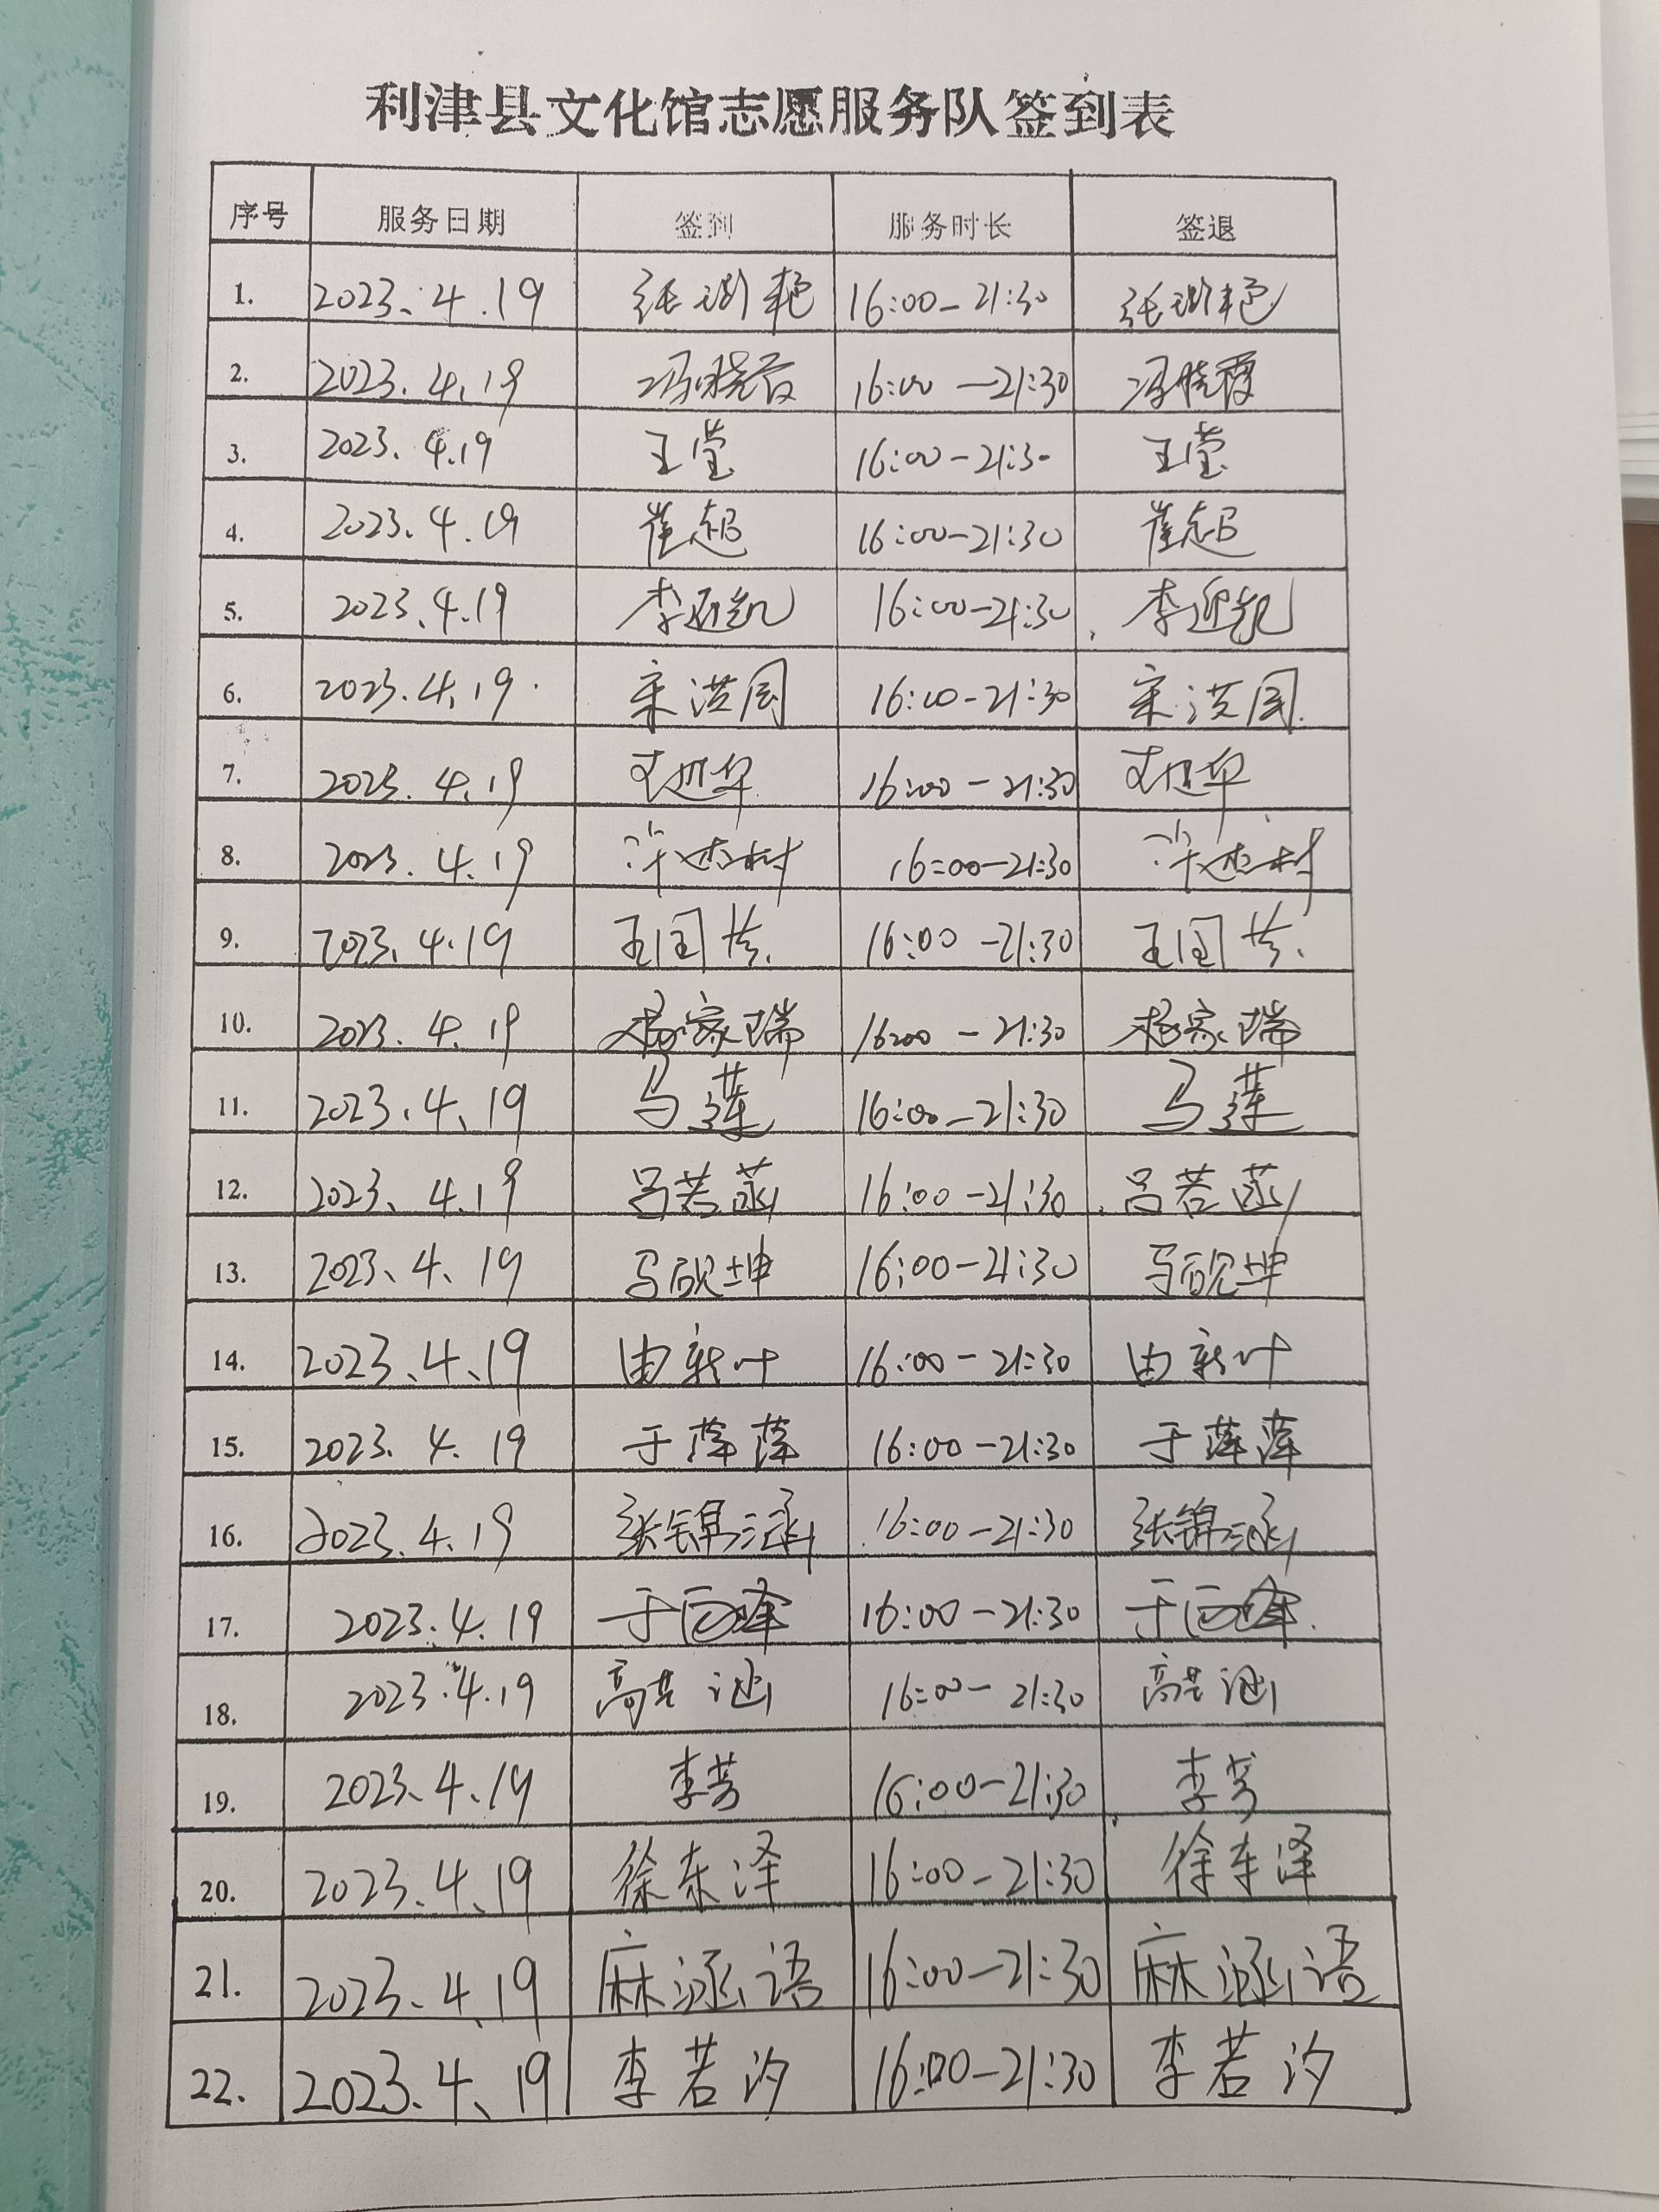 利津县文化馆志愿服务队签到表
序号 服务日期 签到 服务时长 签退
1. 2023.4.19 16:00-21:30
2. 2023.4.19 冯晓霞 16:00-21:30 冯晓霞
3. 2023.4.19 王莹 16:00-21:30 王莹
4. 2023.4.19 崔超 16:00-21:30 崔超
5. 2023.4.19 李延凯 16:00-21:30 李延凯
6. 2023.4.19. 宋洪周 16:00-21:30 宋洪周.
7. 2023.4.19 16:00-21:30
8. 2023.4.19 16:00-21:30
9. 2023.4.19 王国芳 16:00-21:30 王国芳
10. 2023.4.19 杨家瑞 16:00-21:30 杨家瑞
11. 2023.4.19 马莲 16:00-21:30 马莲
12. 2023.4.19 吕若菡 16:00-21:30 吕若菡
13. 2023.4.19 马砚坤 16:00-21:30 马砚坤
14. 2023.4.19 由新叶 16:00-21:30 由新叶
15. 2023.4.19 于萍萍 16:00-21:30 于萍萍
16. 2023.4.19 张锦涵 16:00-21:30 张锦涵
17. 2023.4.19 16:00-21:30
18. 2023.4.19 16:00-21:30
19. 2023.4.19 李芳 16:00-21:30 李芳
20. 2023.4.19 徐东泽 16:00-21:30 徐东泽
21. 2023.4.19 麻涵语 16:00-21:30 麻涵语
22. 2023.4.19 李若汐 16:00-21:30 李若汐